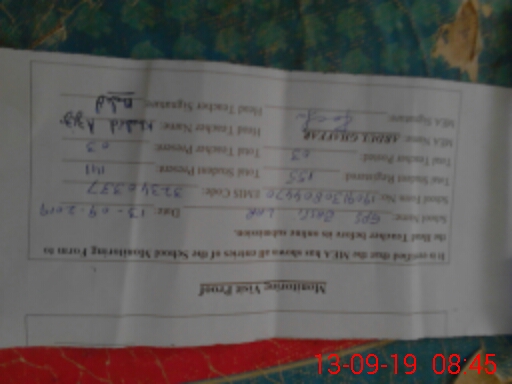 Monitoring Visit Proof
It is verified that the MEA has shown all entries of the School Monitoring Form to
the Head Teacher before its online submission.
School Name: GPS BASTI LAR Date: 13-09-2019
School Form No: EMIS Code: 32340337
Total Registered 155 Total Student Present: 141
Total Teacher Posted: 03 Total Teacher Present: 03
MEA Name: ABDUL GHAFFAR Head Teacher Name: Khalid
MEA Signature: Head Teacher Signature:
13-09-19 08:45